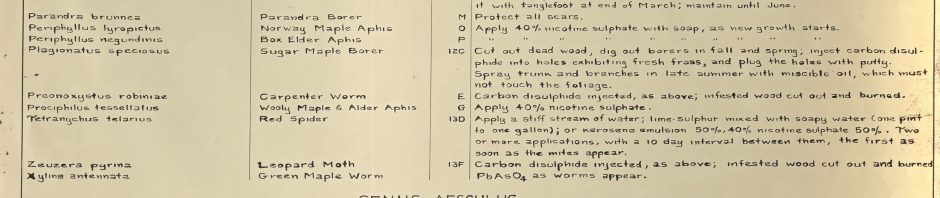 it with tanglefoot at end of March; maintain until June.
Parandra brunnea Parandra Borer M Protect all scars.
Periphyllus lyropictus Norway Maple Aphis O Apply 40% nicotine sulphate with soap, as new growth starts.
Periphyllus negundinis Box Elder Aphis P " " " " " " " " "
Plagionatus speciosus Sugar Maple Borer 12C Cut out dead wood, dig out borers in fall and spring; inject carbon disul-
phide into holes exhibiting fresh frass, and plug the holes with putty.
Spray trunk and branches in late summer with miscible oil, which must
not touch the foliage.
Preonoxystus robiniae Carpenter Worm E Carbon disulphide injected, as above; infested wood cut out and burned.
Prociphilus tessellatus Wooly Maple & Alder Aphis G Apply 40% nicotine sulphate.
Tetranychus telarius Red Spider 13D Apply a stiff stream of water; lime-sulphur mixed with soapy water (one pint
to one gallon); or kerosene emulsion 50%, 40% nicotine sulphate 50%. Two
or more applications, with a 10 day interval between them, the first as
soon as the mites appear.
Zeuzera pyrina Leopard Moth 13F Carbon disulphide injected, as above; infested wood cut out and burned
Xylina antennata Green Maple Worm PbAsO4 as worms appear.
GENUS AESCULUS